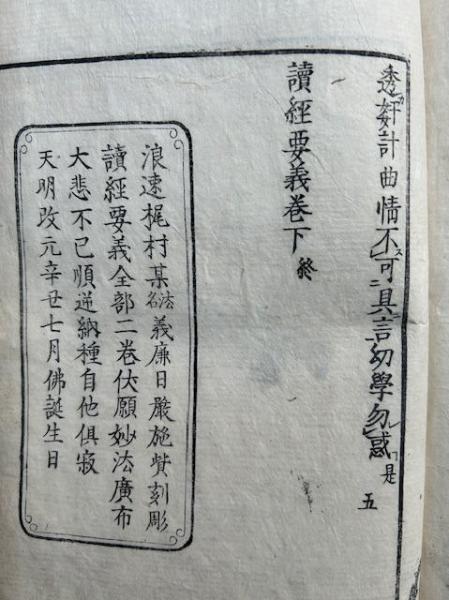 透奸計曲情不可具言幼學勿惑是五
讀經要義卷下終
浪速梶村某法名義廉日嚴施貲刻彫
讀經要義全部二卷伏願妙法廣布
大悲不已順逆納種自他俱寂
天明改元辛丑七月佛誕生日